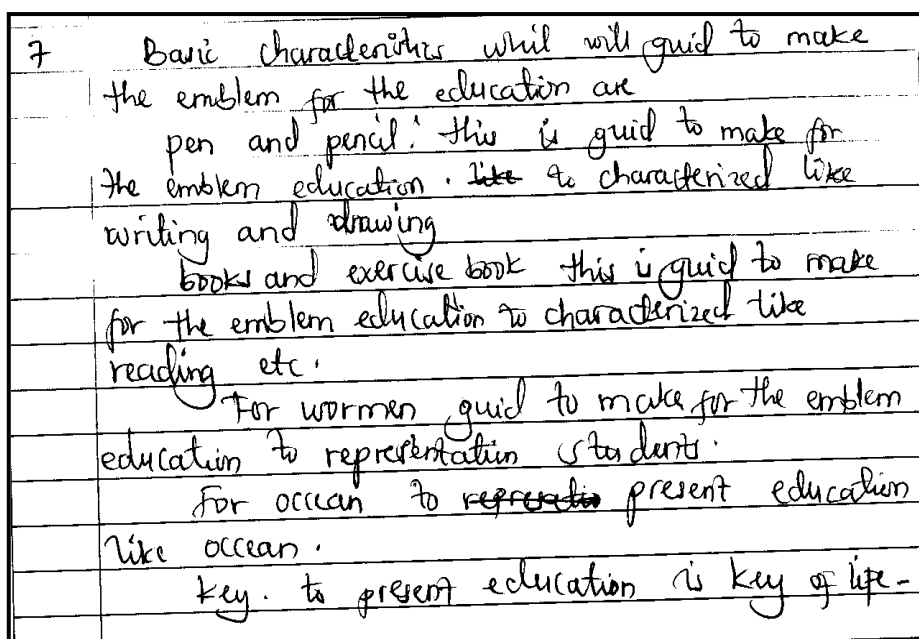 7 Basic characteristics whil will guid to make
the emblem for the education are
pen and pencil: this is guid to make for
the emblem education. like to characterized like
writing and drawing
books and exercise book this is guid to make
for the emblem education to characterized like
reading etc.
For wormen guid to make for the emblem
education to representation students.
For occean to present education
like occean.
key. to present education is key of life-